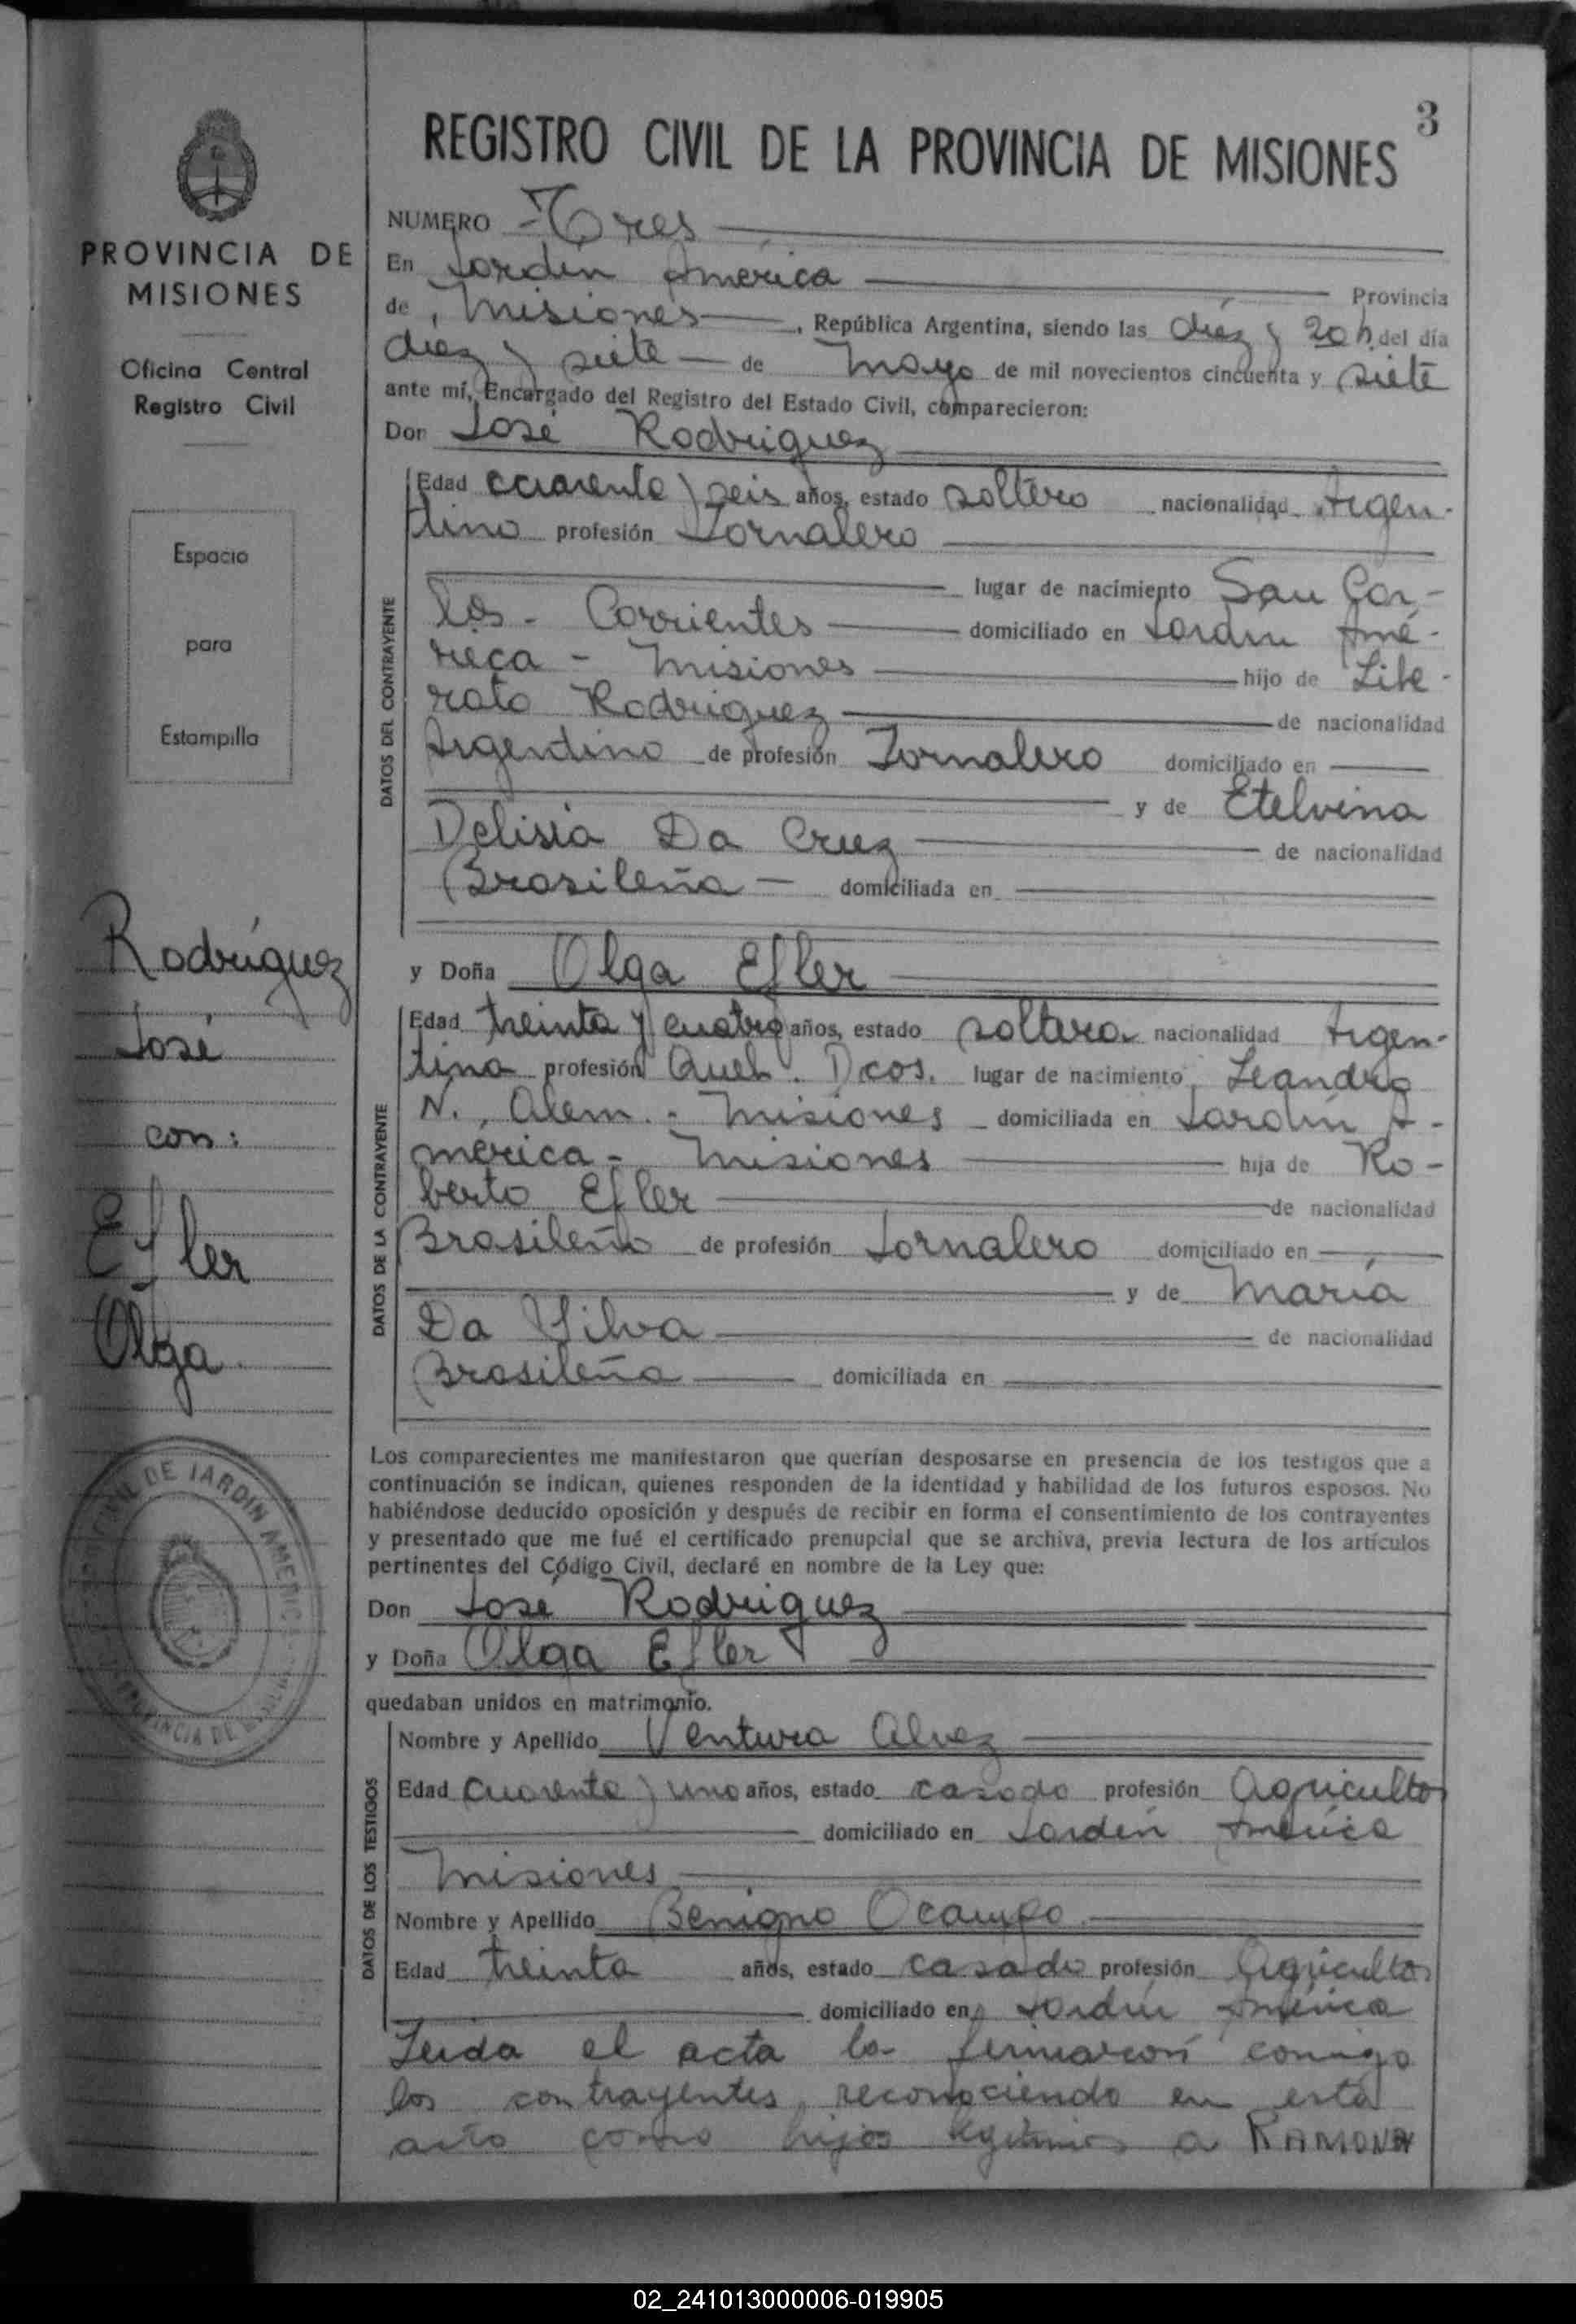 3
REGISTRO CIVIL DE LA PROVINCIA DE MISIONES
PROVINCIA DE
MISIONES
Oficina Central
Registro Civil
Espacio
para
Estampilla
Rodríguez
José
con:
Efler
Olga
DE JARDIN AMERICA
PROVINCIA DE
NUMERO Tres
En Jardín América Provincia
de Misiones, República Argentina, siendo las diez y 20 h. del día
diez y siete de Mayo de mil novecientos cincuenta y siete
ante mí, Encargado del Registro del Estado Civil, comparecieron:
Don José Rodriguez
DATOS DEL CONTRAYENTE
Edad cuarenta y seis años, estado soltero nacionalidad Argen-
tino profesión Jornalero
lugar de nacimiento San Car-
los - Corrientes domiciliado en Jardín Amé-
rica - Misiones hijo de Libe-
rato Rodriguez de nacionalidad
Argentino de profesión Jornalero domiciliado en
y de Etelvina
Delisia Da Cruz de nacionalidad
Brasileña domiciliada en
y Doña Olga Efler
DATOS DE LA CONTRAYENTE
Edad treinta y cuatro años, estado soltera nacionalidad Argen-
tina profesión Queh. Dcos. lugar de nacimiento Leandro
N. Alem - Misiones domiciliada en Jardín A-
mérica - Misiones hija de Ro-
berto Efler de nacionalidad
Brasileño de profesión Jornalero domiciliado en
y de María
Da Silva de nacionalidad
Brasileña domiciliada en
Los comparecientes me manifestaron que querían desposarse en presencia de los testigos que a
continuación se indican, quienes responden de la identidad y habilidad de los futuros esposos. No
habiéndose deducido oposición y después de recibir en forma el consentimiento de los contrayentes
y presentado que me fué el certificado prenupcial que se archiva, previa lectura de los artículos
pertinentes del Código Civil, declaré en nombre de la Ley que:
Don José Rodriguez
y Doña Olga Efler
quedaban unidos en matrimonio.
DATOS DE LOS TESTIGOS
Nombre y Apellido Ventura Alvez
Edad cuarenta y uno años, estado casado profesión Agricultor
domiciliado en Jardín América
Misiones
Nombre y Apellido Benigno Ocampo
Edad treinta años, estado casado profesión Agricultor
domiciliado en Jardín América
Leida el acta la firmaron conmigo
los contrayentes reconociendo en este
acto como hijos legítimos a RAMONA
02_241013000006-019905